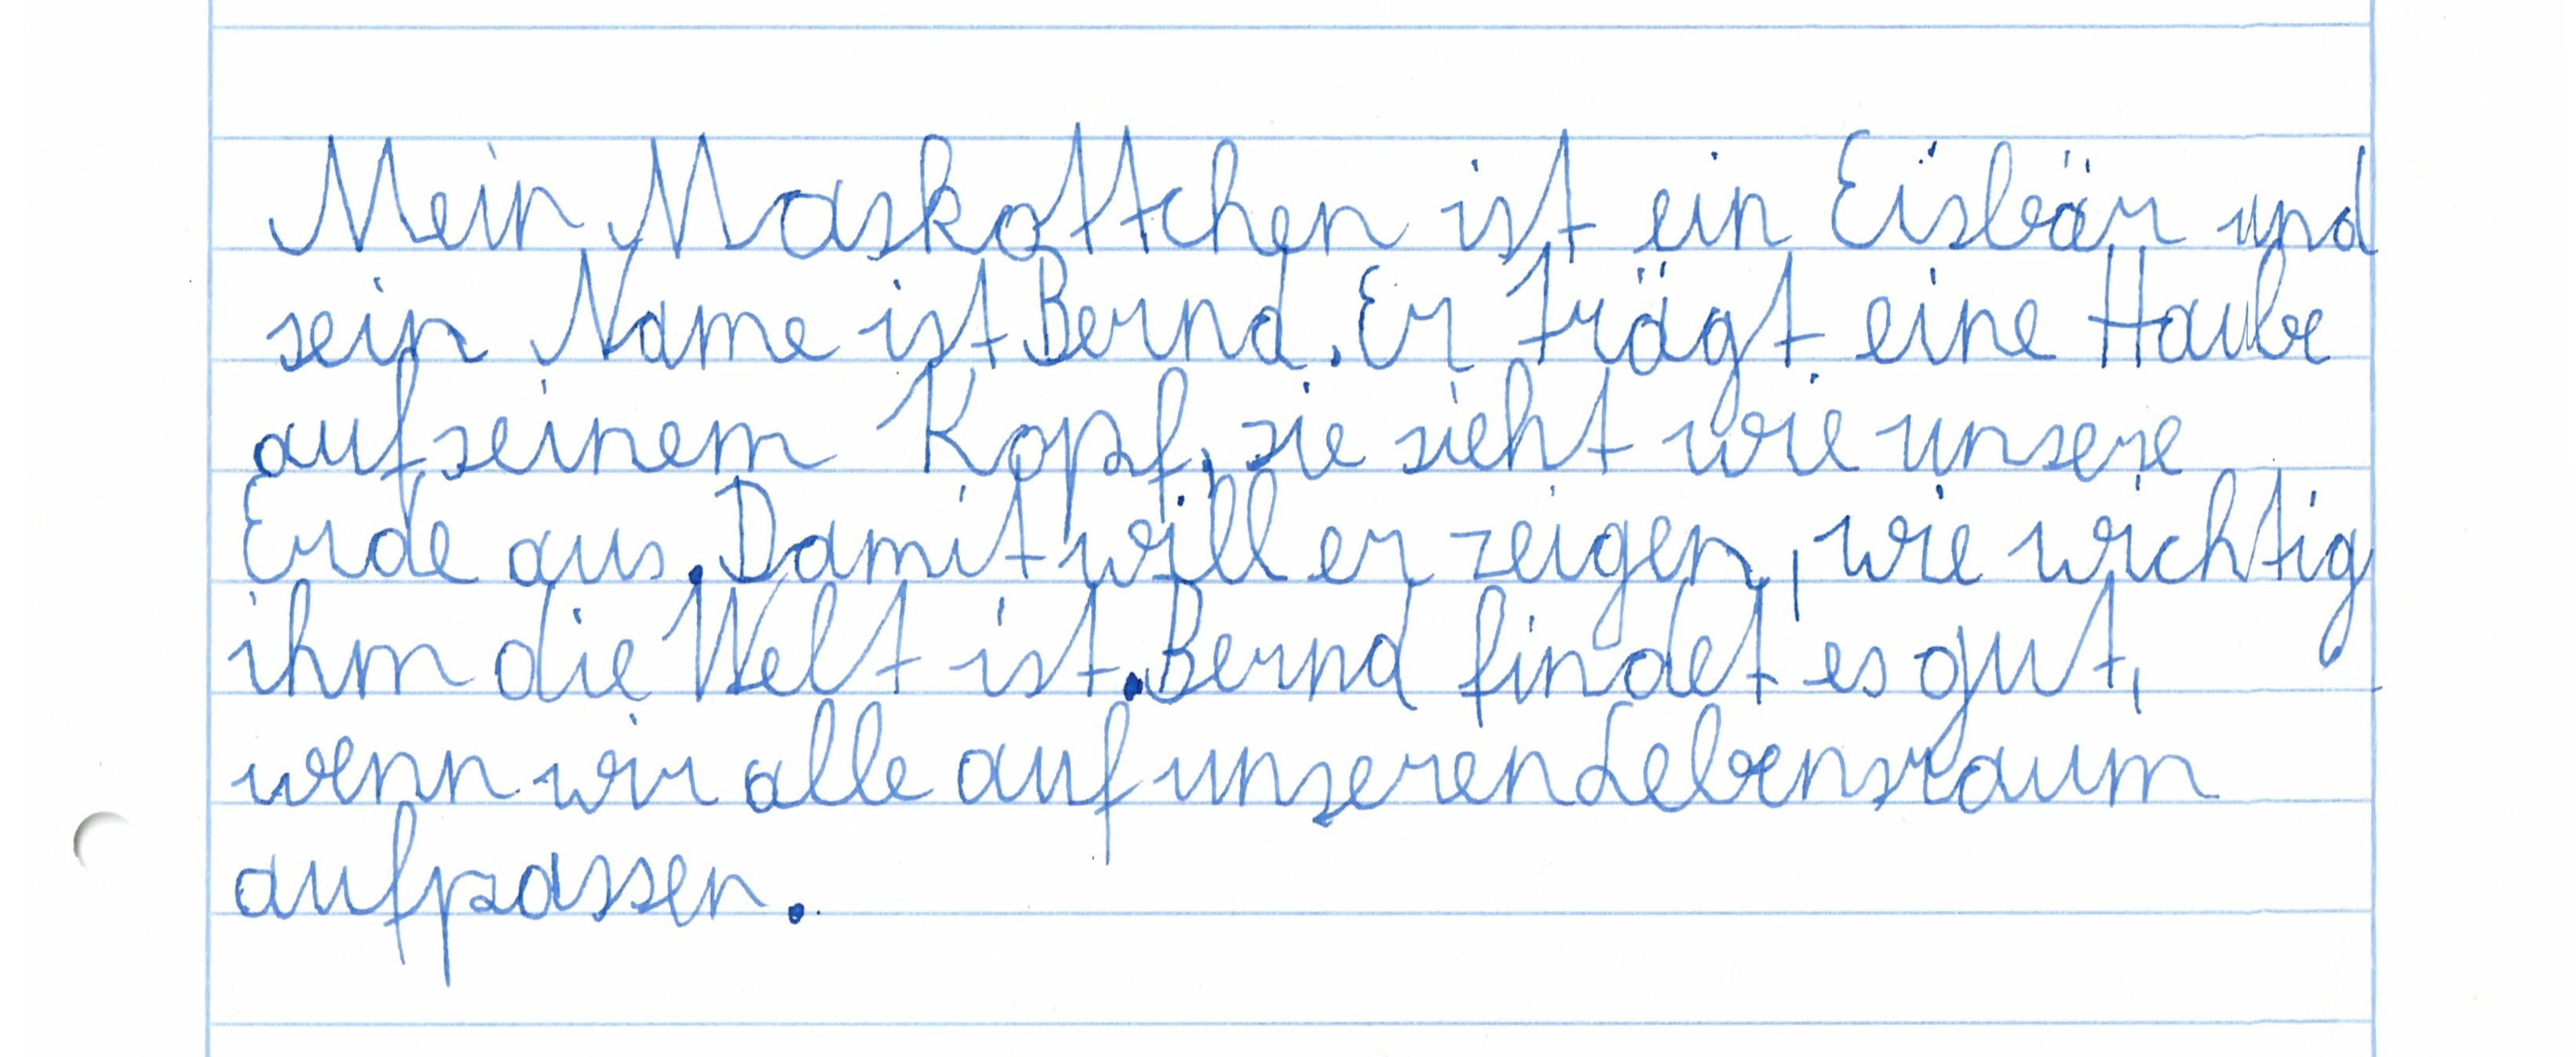 Mein Maskottchen ist ein Eisbär und
sein Name ist Bernd. Er trägt eine Haube
auf seinem Kopf, sie sieht wie unsere
Erde aus. Damit will er zeigen, wie wichtig
ihm die Welt ist. Bernd findet es gut,
wenn wir alle auf unseren Lebensraum
aufpassen.